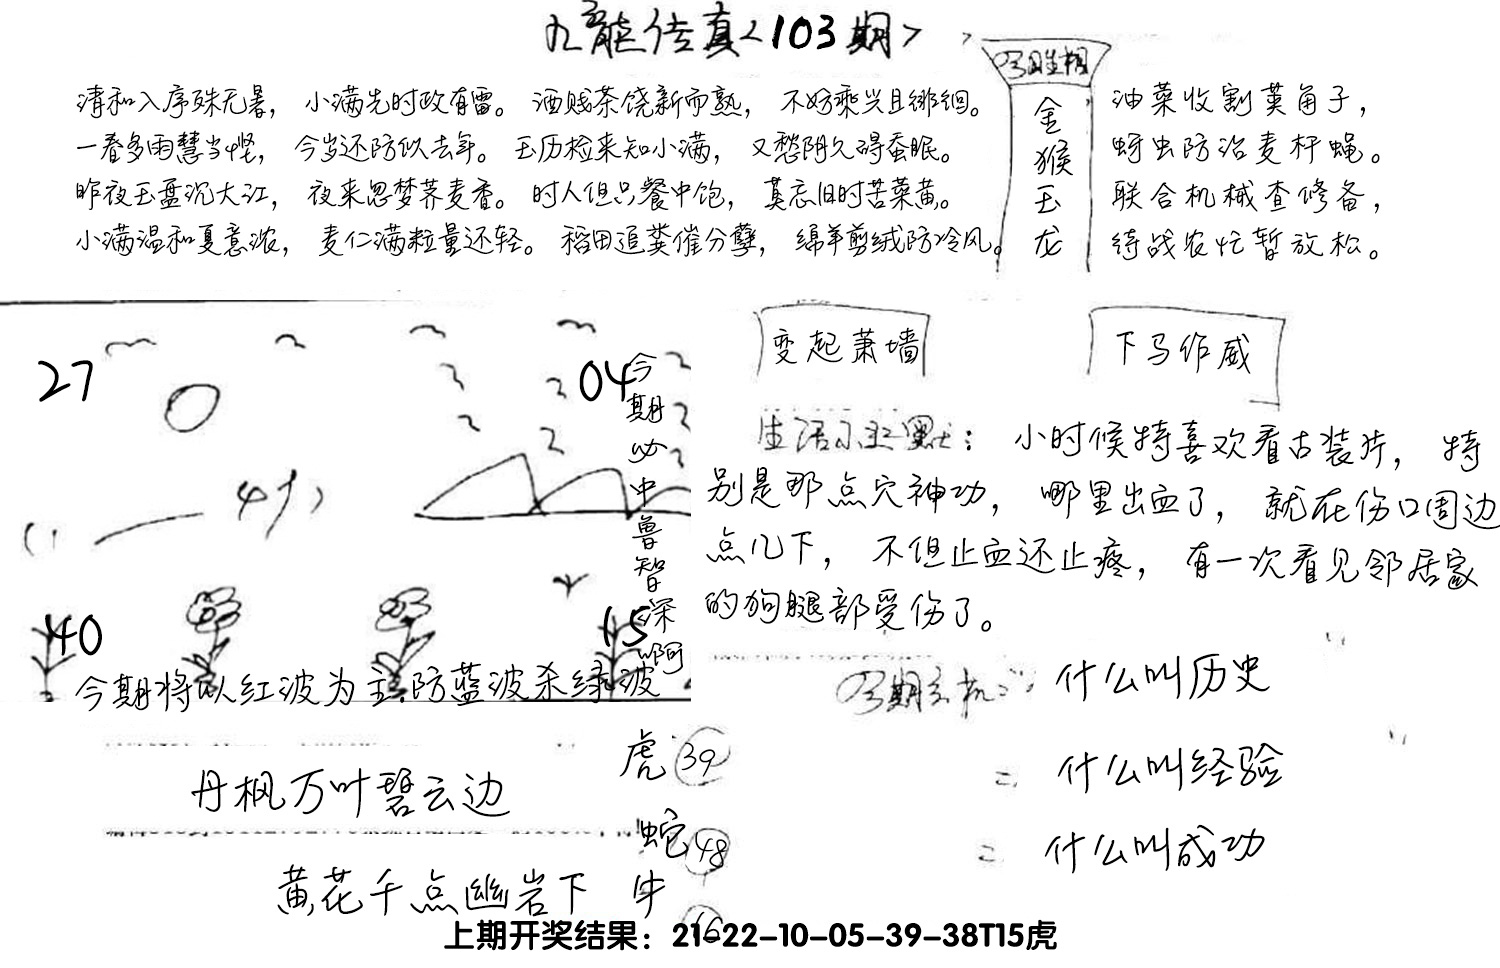 九龍传真<103期>
清和入序殊无暑，小满先时政有雷。酒贱茶饶新而熟，不妨乘兴且徘徊。
一春多雨慧当悭，今岁还防似去年。玉历检来知小满，又愁阴久碍蚕眠。
昨夜玉盘沉大江，夜来忽梦荞麦香。时人但只餐中饱，莫忘旧时苦菜黄。
小满温和夏意浓，麦仁满粒量还轻。稻田追粪催分孽，绵羊剪绒防冷风。
金
猴
玉
龙
油菜收割荚角子，
蚜虫防治麦杆蝇。
联合机械查修备，
待战农忙暂放松。
27
04
40
15
今期必中鲁智深啊
今期将以红波为主防蓝波杀绿波
变起萧墙
下马作威
生活小幽默：小时候特喜欢看古装片，特
别是那点穴神功，哪里出血了，就在伤口周边
点几下，不但止血还止疼，有一次看见邻居家
的狗腿部受伤了。
什么叫历史
二 什么叫经验
二 什么叫成功
丹枫万叶碧云边
黄花千点幽岩下
虎 39
蛇 48
牛 16
上期开奖结果：21-22-10-05-39-38T15虎